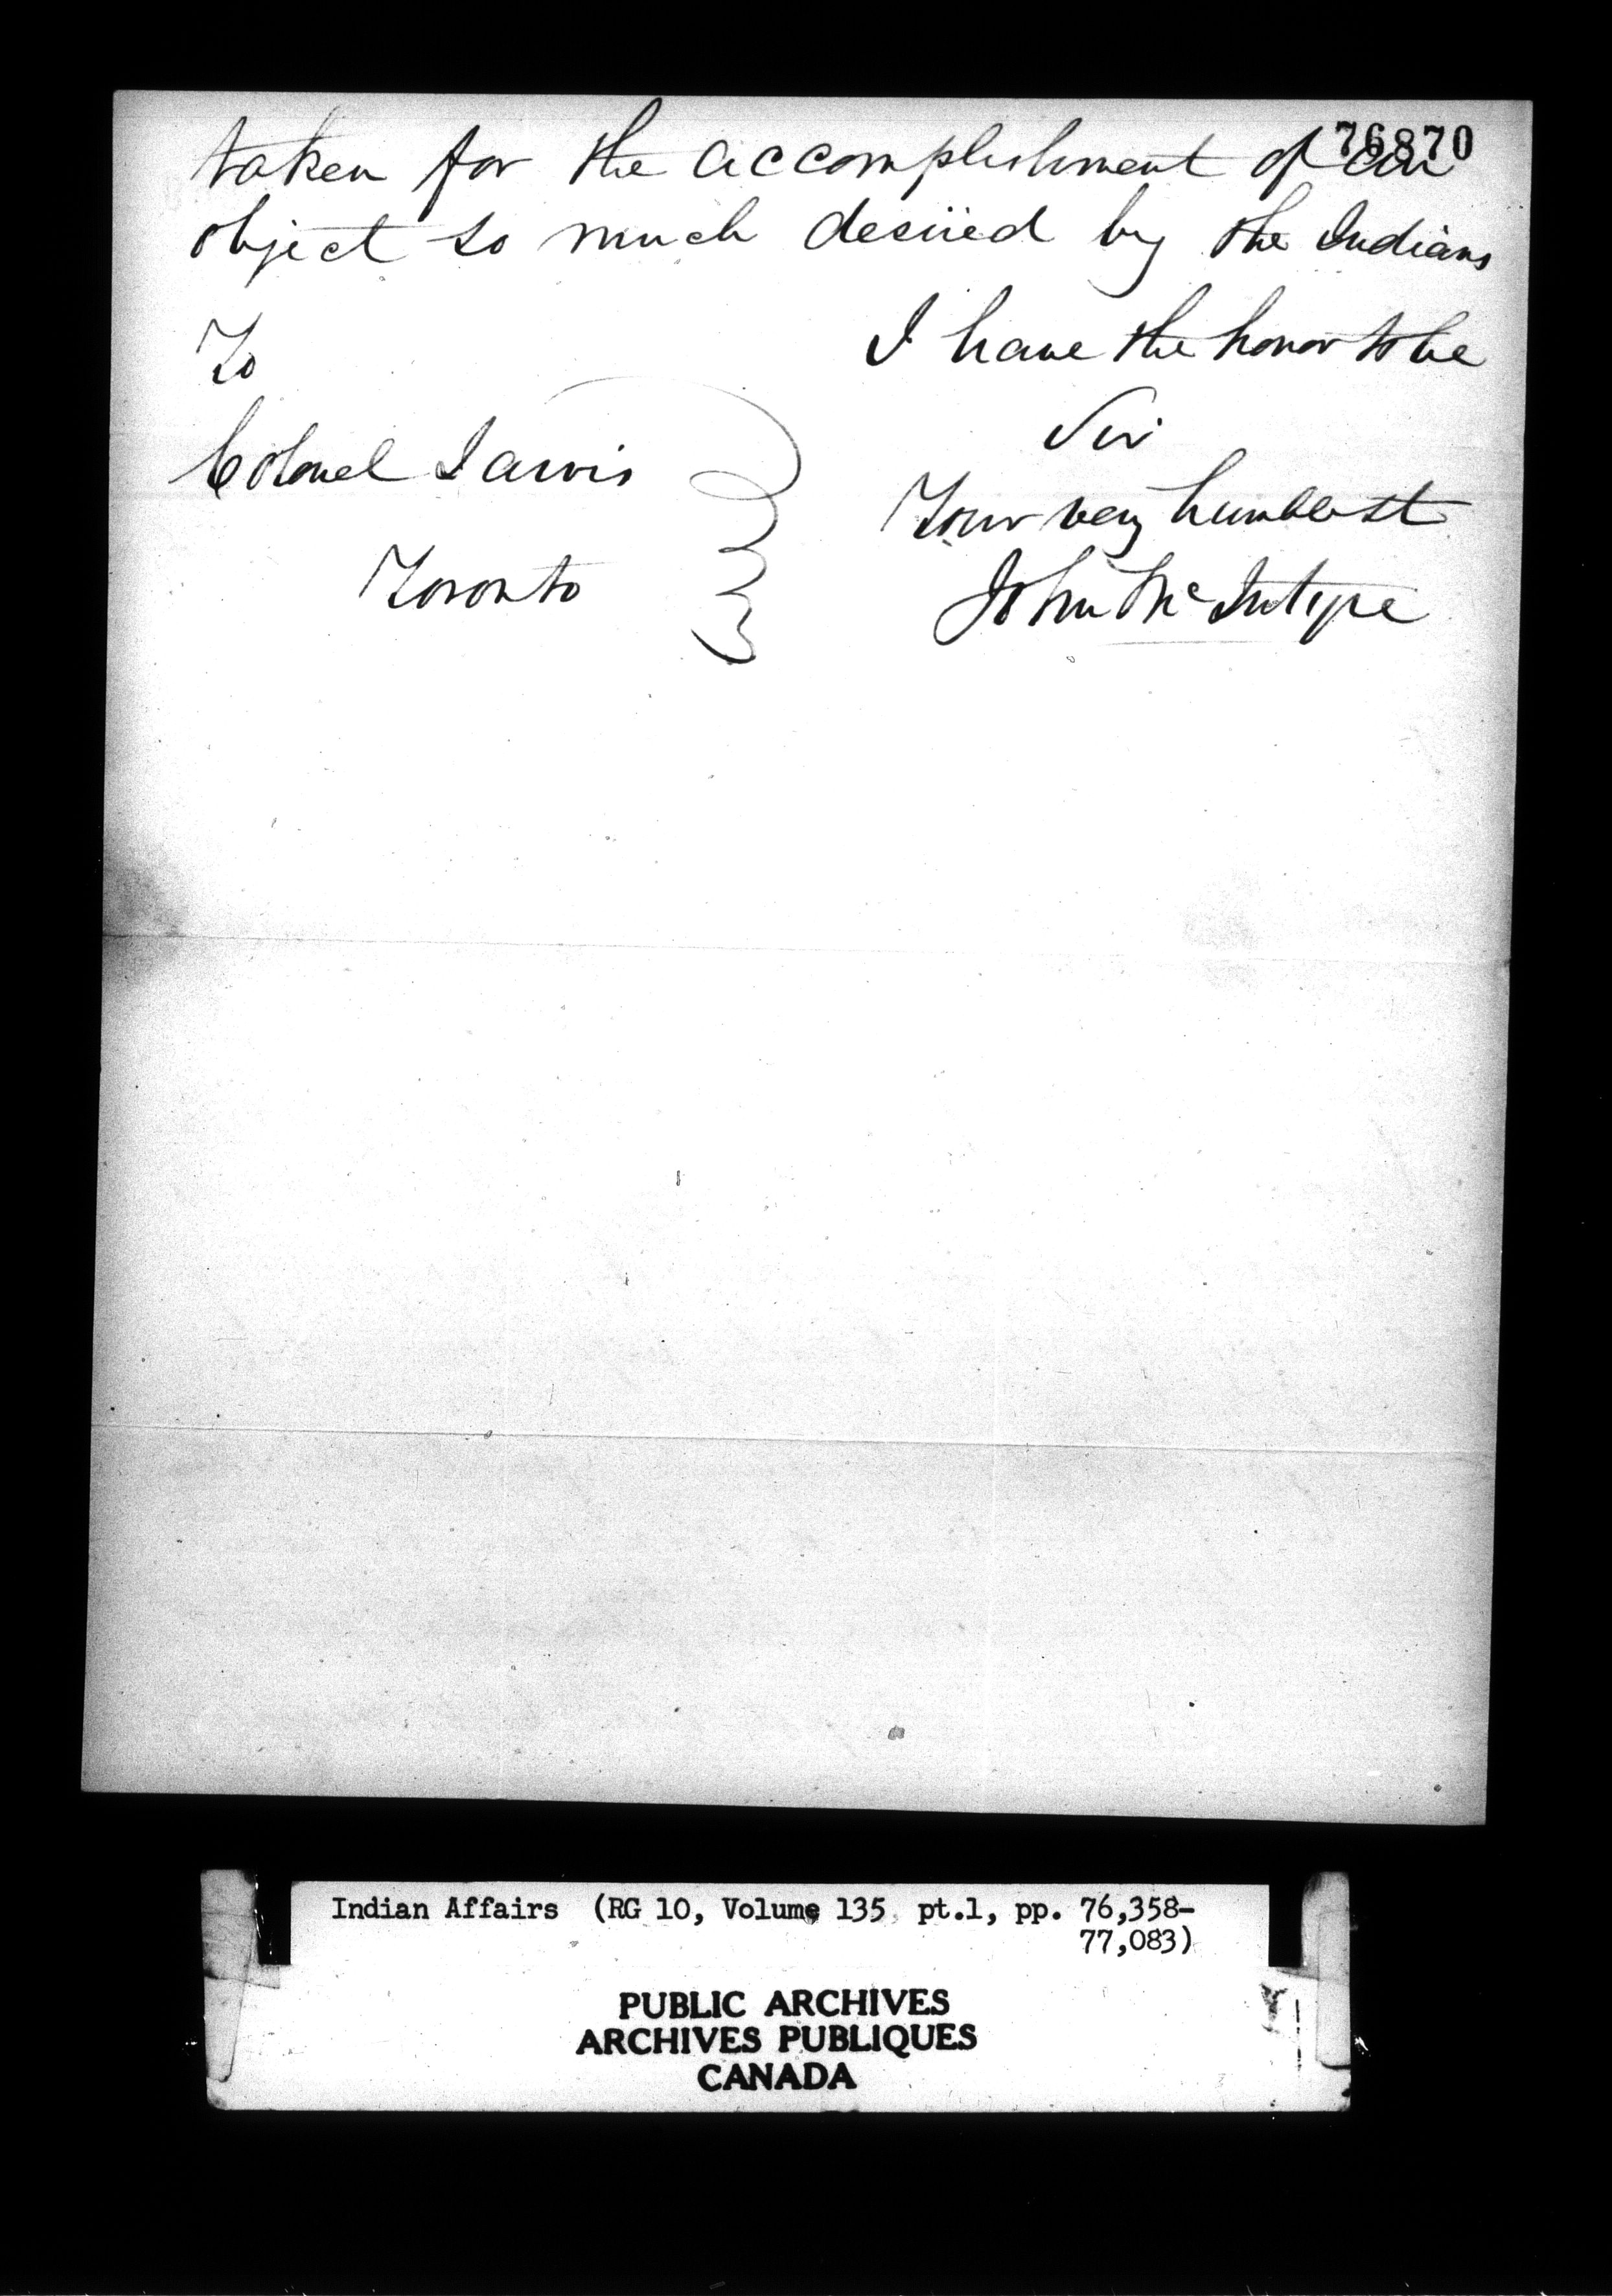 76870
taken for the accomplishment of an
object so much desired by the Indians
I have the honor to be
Sir
Your very humble st
John McIntyre
To
Colonel Jarvis
Toronto
Indian Affairs (RG 10, Volume 135 pt.1, pp. 76,358-
77,083)
PUBLIC ARCHIVES
ARCHIVES PUBLIQUES
CANADA